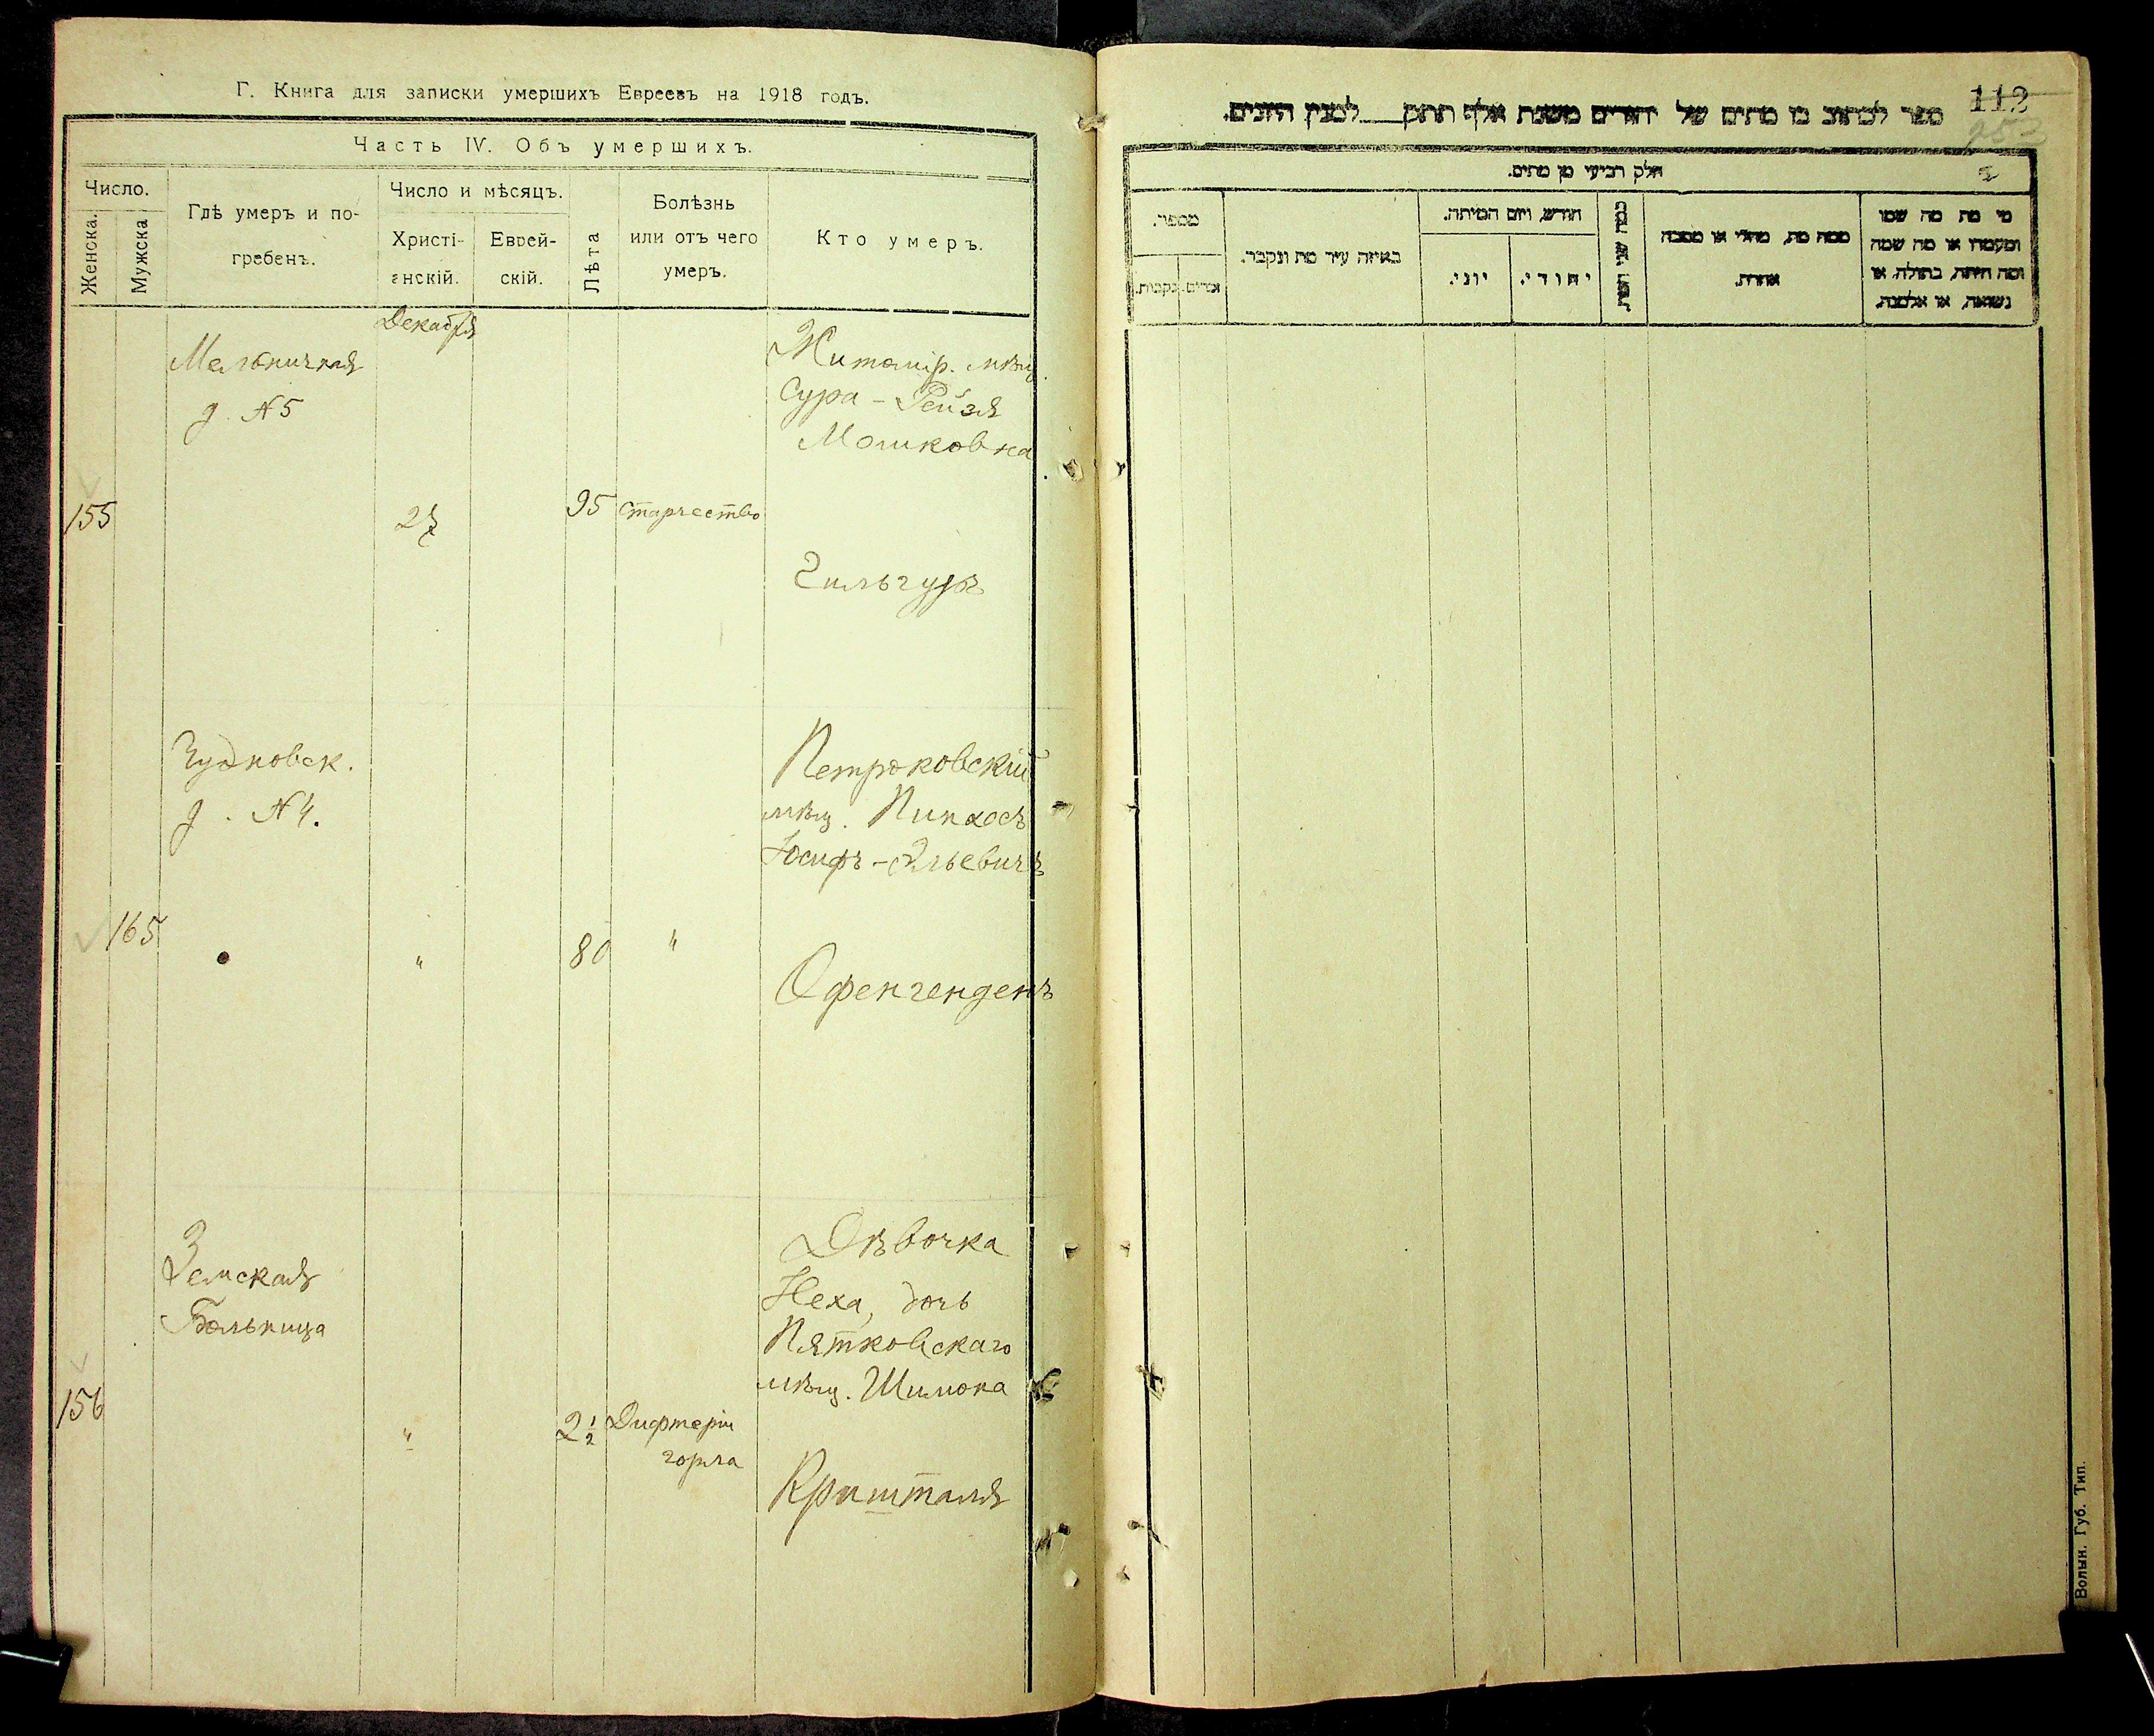 Г. Книга для записки умершихъ Евреевъ на 1918 годъ.
Часть IV. Объ умершихъ.
Число.
Женска.
Мужска
Гдѣ умеръ и по-
гребенъ.
Число и мѣсяцъ.
Христі-
анскій.
Еврей-
скій.
Лѣта
Болѣзнь
или отъ чего
умеръ.
Кто умеръ.
Декабря
Мельничная
д. №5
Житомір. мѣщ.
Сура-Рейзя
Мошковна
155
27
95
старчество
Гильгуръ
Чудновск.
д. №4.
Петроковскій
мѣщ. Пинхосъ
Іосифъ-Эльевичъ
165
"
80
"
Офенгенденъ
Земская
Больница
Дѣвочка
Неха, дочь
Пятковскаго
мѣщ. Шимона
156
"
2 1/2
Дифтерія
горла
Кришталя
112
253
ספר לכתוב בו מתים של יהודים משנת אלף תתק___ למנין היונים.
חלק רביעי מן מתים.
מספר.
זכרים.
נקבות.
באיזה עיר מת ונקבר.
חודש, ויום המיתה.
יוני.
יהודי.
כמה שני המת
ממה מת, מחלי או מסבה
אחרת.
מי מת מה שמו
ומעמדו או מה שמה
ומה היתה, בתולה, או
נשואה, או אלמנה.
Волын. Губ. Тип.